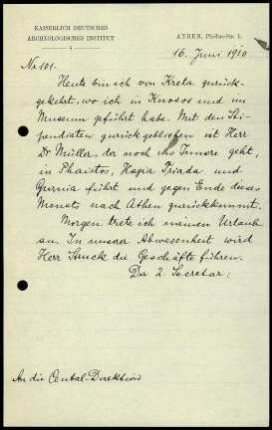 KAISERLICH DEUTSCHES
ARCHÄOLOGISCHES INSTITUT
ATHEN, Phidiasstr. 1.
16. Juni 1910
No. 101.
Heute bin ich von Kreta zurück-
gekehrt, wo ich in Knosos und im
Museum geführt habe. Mit den Sti-
pendiaten zurückgeblieben ist Herr
Dr Müller, der noch ins Innere geht,
in Phaistos, Hagia Triada und
Gurnia führt und gegen Ende dieses
Monats nach Athen zurückkommt.
Morgen trete ich meinen Urlaub
an. In unserer Abwesenheit wird
Herr Struck die Geschäfte führen.
Der 2. Secretar:
An die Central-Direktion